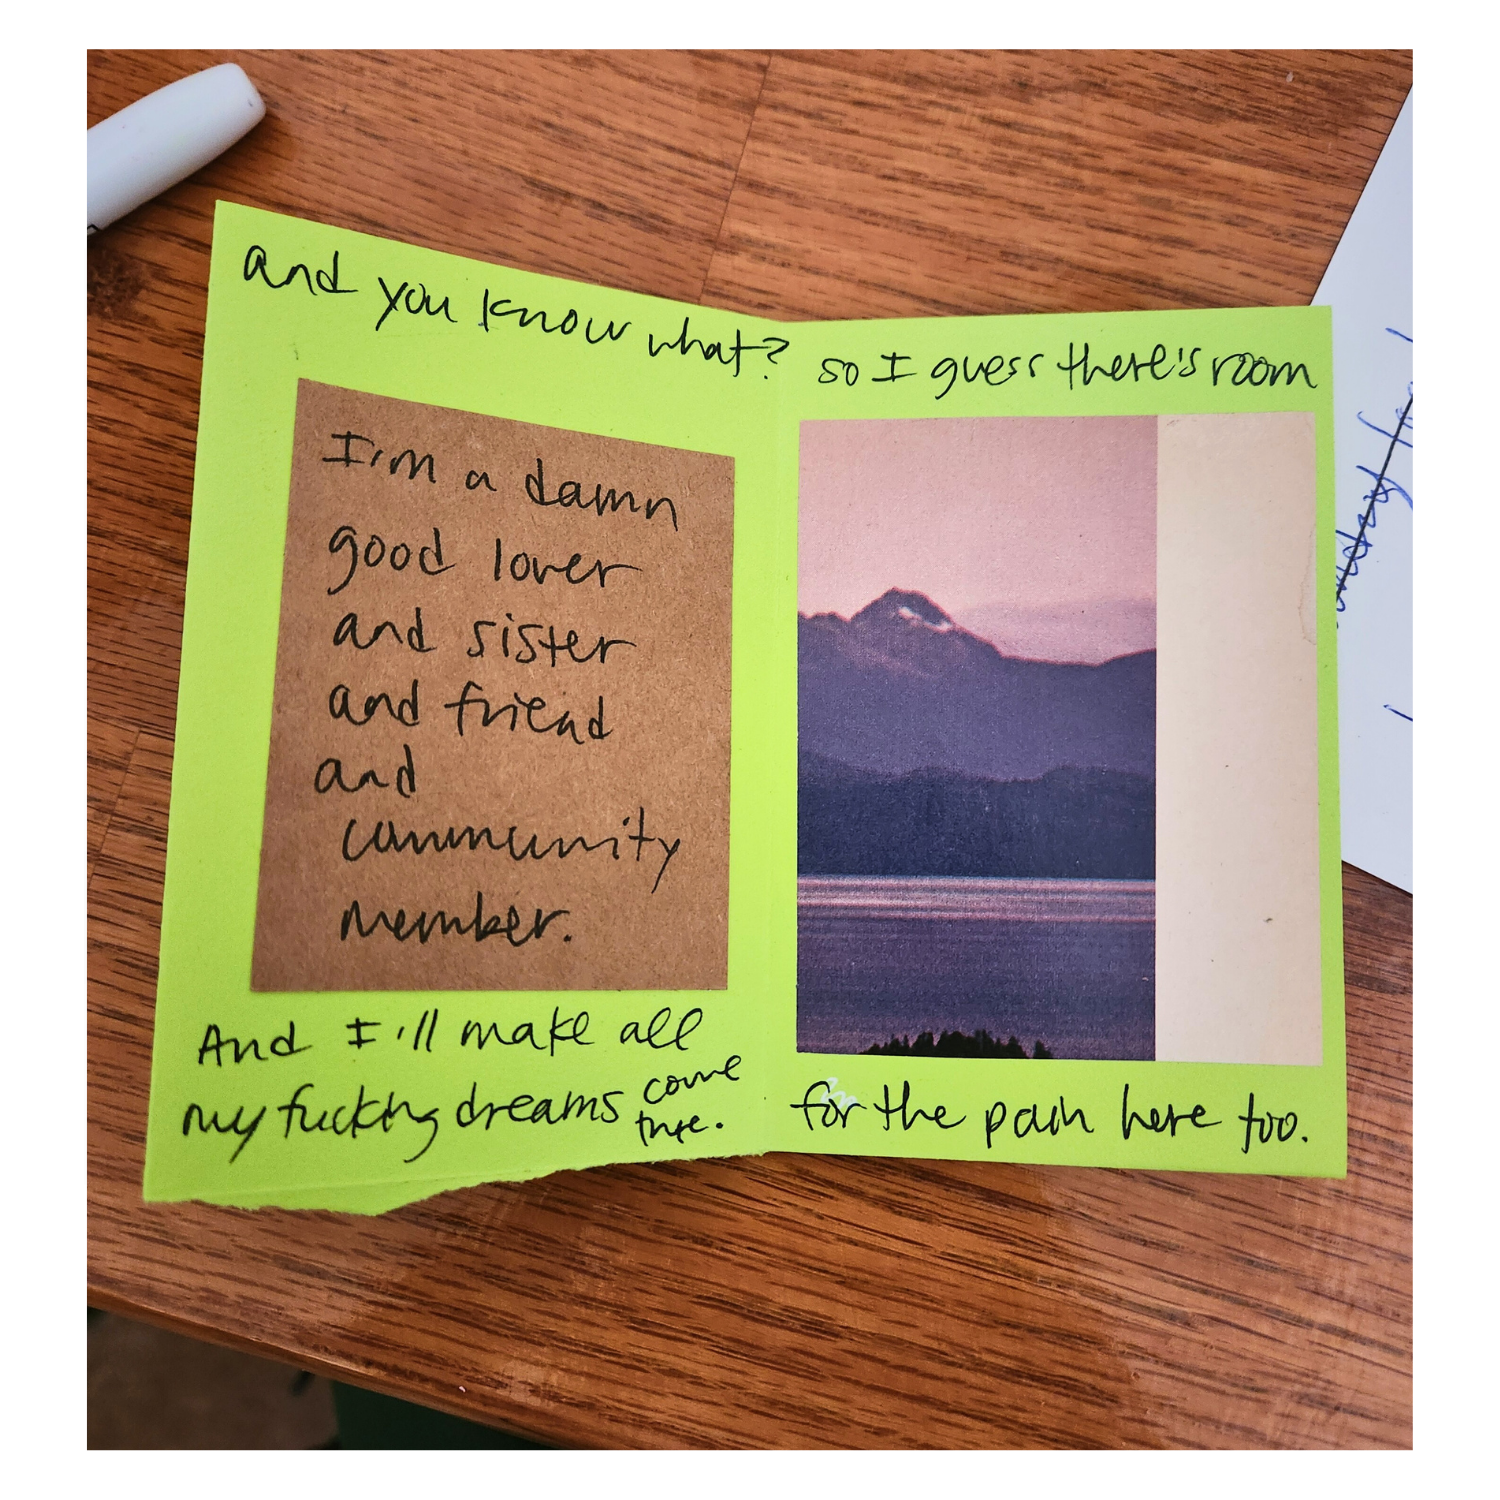 and you know what?
I'm a damn
good lover
and sister
and friend
and
community
member.
And I'll make all
my fucking dreams come
true.
so I guess there's room
for the pain here too.